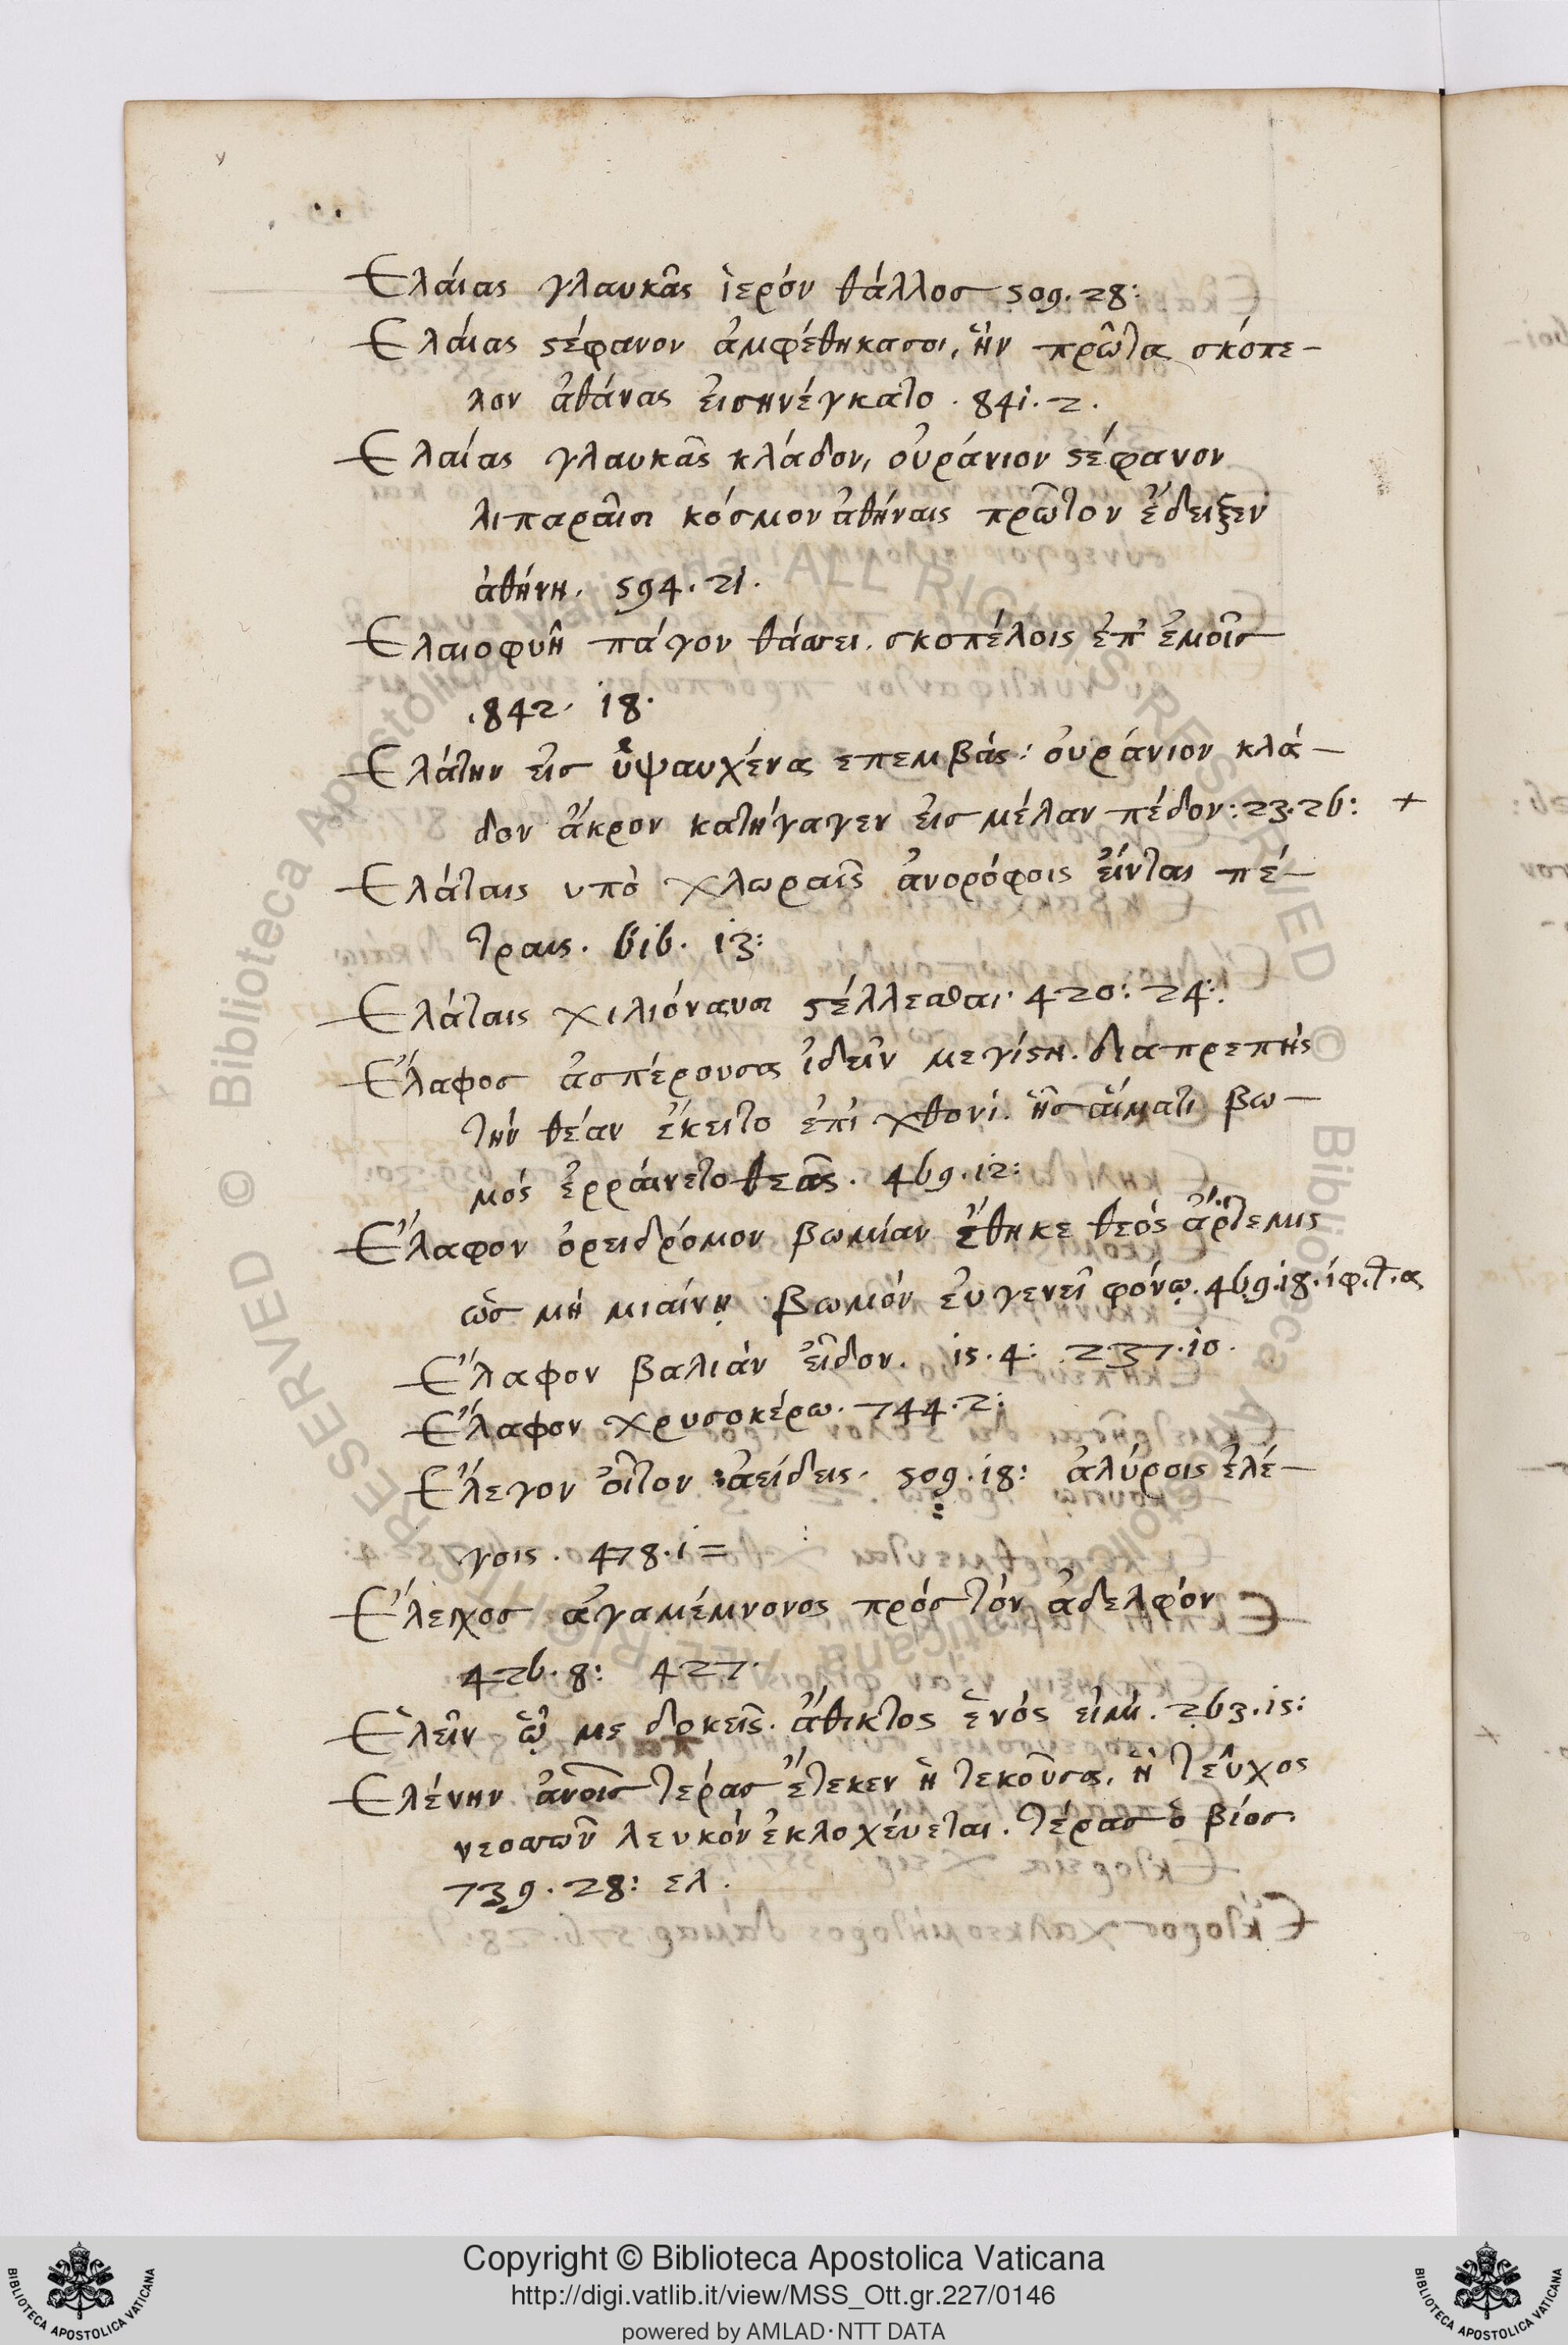 Ελάιας γλαυκᾶς ἱερόν θάλλοσ 509. 28:
Ελάιας στέφανον ἀμφέθηκασοι, ἣν πρῶτα σκόπε-
λον ἀθάνας ἐισηνέγκατο. 841. 2.
Ελαίας γλαυκᾶς κλάδον, οὐράνιον στέφανον
λιπαρᾶισι κόσμον ἀθήναις πρῶτον ἔδειξεν
ἀθήνη. 594. 21.
Ελαιοφυῆ πάγον θάσσει. σκοπέλοις ἐπ' ἐμοῖσ
.842. 18.
Ελάτην εἰσ ὑψαυχένα επεμβάς: οὐράνιον κλά-
δον ἄκρον κατήγαγεν ἐισ μέλαν πέδον: 23. 26: +
Ελάταις υπὸ χλωραῖς ἀνορόφοις ἕινται πέ-
τραις. 616. 13:
Ελάταις χιλιόναυσι στέλλεσθαι 420: 24:
Έλαφοσ ἀσπέρουσα ἰδεῖν μεγίστη. διαπρεπὴς
τὴν θέαν ἔκειτο ἐπὶ χθονί. ἧσ ἅιματι βω-
μός ἐρράινετο θεᾶς. 469. 12:
Έλαφον ὀρειδρόμον βωμίαν ἔθηκε θεός ἄρτεμις
ὡσ μὴ μιαίνῃ βωμόν ευγενεῖ φόνῳ. 469. 18. ἰφ. τ. α
Έλαφον βαλιὰν εἶδον. 15. 4: 237. 10.
Έλαφον χρυσοκέρω. 744. 2:
Έλεγον οἶτον ἀείδεις. 509. 18: ἀλύροις ἐλέ-
γοις. 478. 1=
Έλεγχοσ ἀγαμέμνονος πρόσ τὸν ἀδελφόν
426. 8: 427.
Ἑλεῖν ᾧ με δοκεῖς. ἄθικτος ἑνός εἰμὶ. 263. 15:
Ελένην ἀνοῖσ τέρασ ἔτεκεν ἡ τεκοῦσα, ἢ τεῦχος
νεοσσῶν λευκόν ἐκλοχέυεται. τέρασ ο βίοσ.
739. 28: ελ.
Copyright © Biblioteca Apostolica Vaticana
http://digi.vatlib.it/view/MSS_Ott.gr.227/0146
powered by AMLAD·NTT DATA